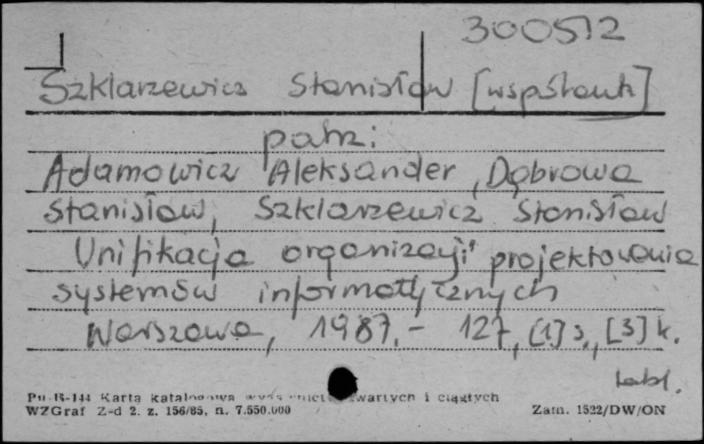 300512
Szklarzewicz Stanisław [współaut.]
patrz:
Adamowicz Aleksander, Dąbrowa
Stanisław, Szklarzewicz Stanisław
Unifikacja organizacji projektowania
systemów informatycznych
Warszawa, 1987. - 127, [1] s., [3] k.
tabl.
Pu-B-144 Karta katalogowa wydawnictw zwartych i ciągłych
WZGraf Z-d 2. z. 156/85, n. 7.550.000 Zam. 1522/DW/ON